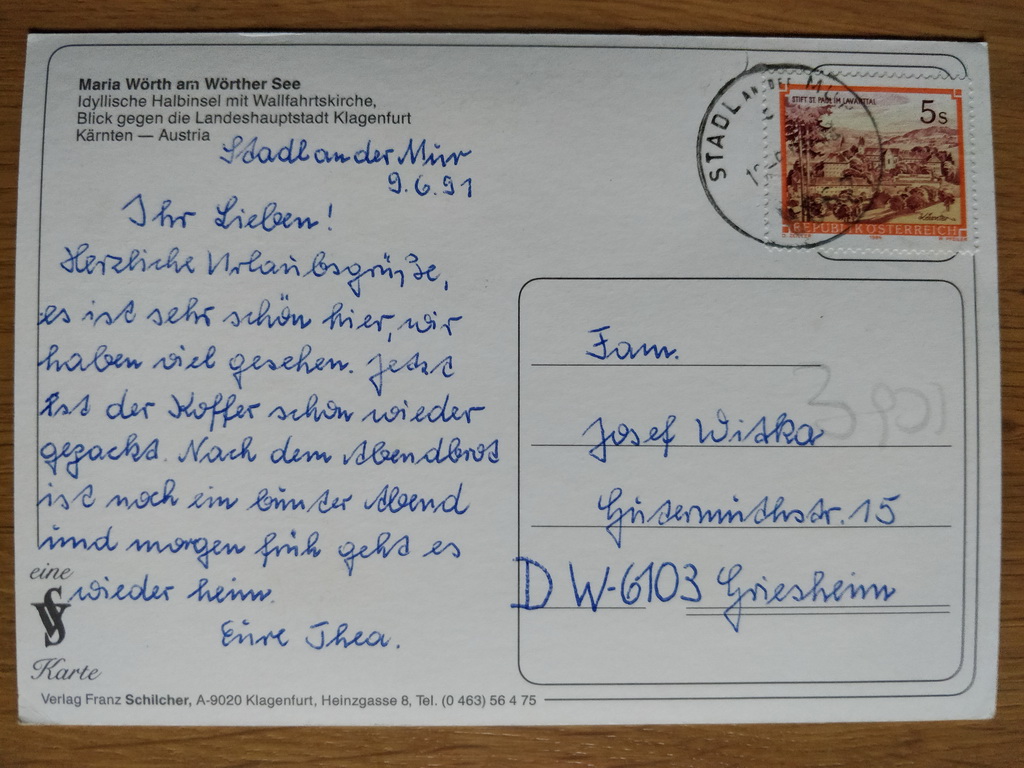 Maria Wörth am Wörther See
Idyllische Halbinsel mit Wallfahrtskirche,
Blick gegen die Landeshauptstadt Klagenfurt
Kärnten — Austria
Stadl an der Mur
9.6.91
Ihr Lieben!
Herzliche Urlaubsgrüße,
es ist sehr schön hier, wir
haben viel gesehen. Jetzt
ist der Koffer schon wieder
gepackt. Nach dem Abendbrot
ist noch ein bunter Abend
und morgen früh geht es
wieder heim.
Eure Thea.
eine
Karte
Verlag Franz Schilcher, A-9020 Klagenfurt, Heinzgasse 8, Tel. (0 463) 56 4 75
STADL AN DER MUR
STIFT ST. PAUL IM LAVANTTAL
5s
REPUBLIK ÖSTERREICH
Fam.
3901
Josef Witka
Gütermuthstr. 15
D W-6103 Griesheim